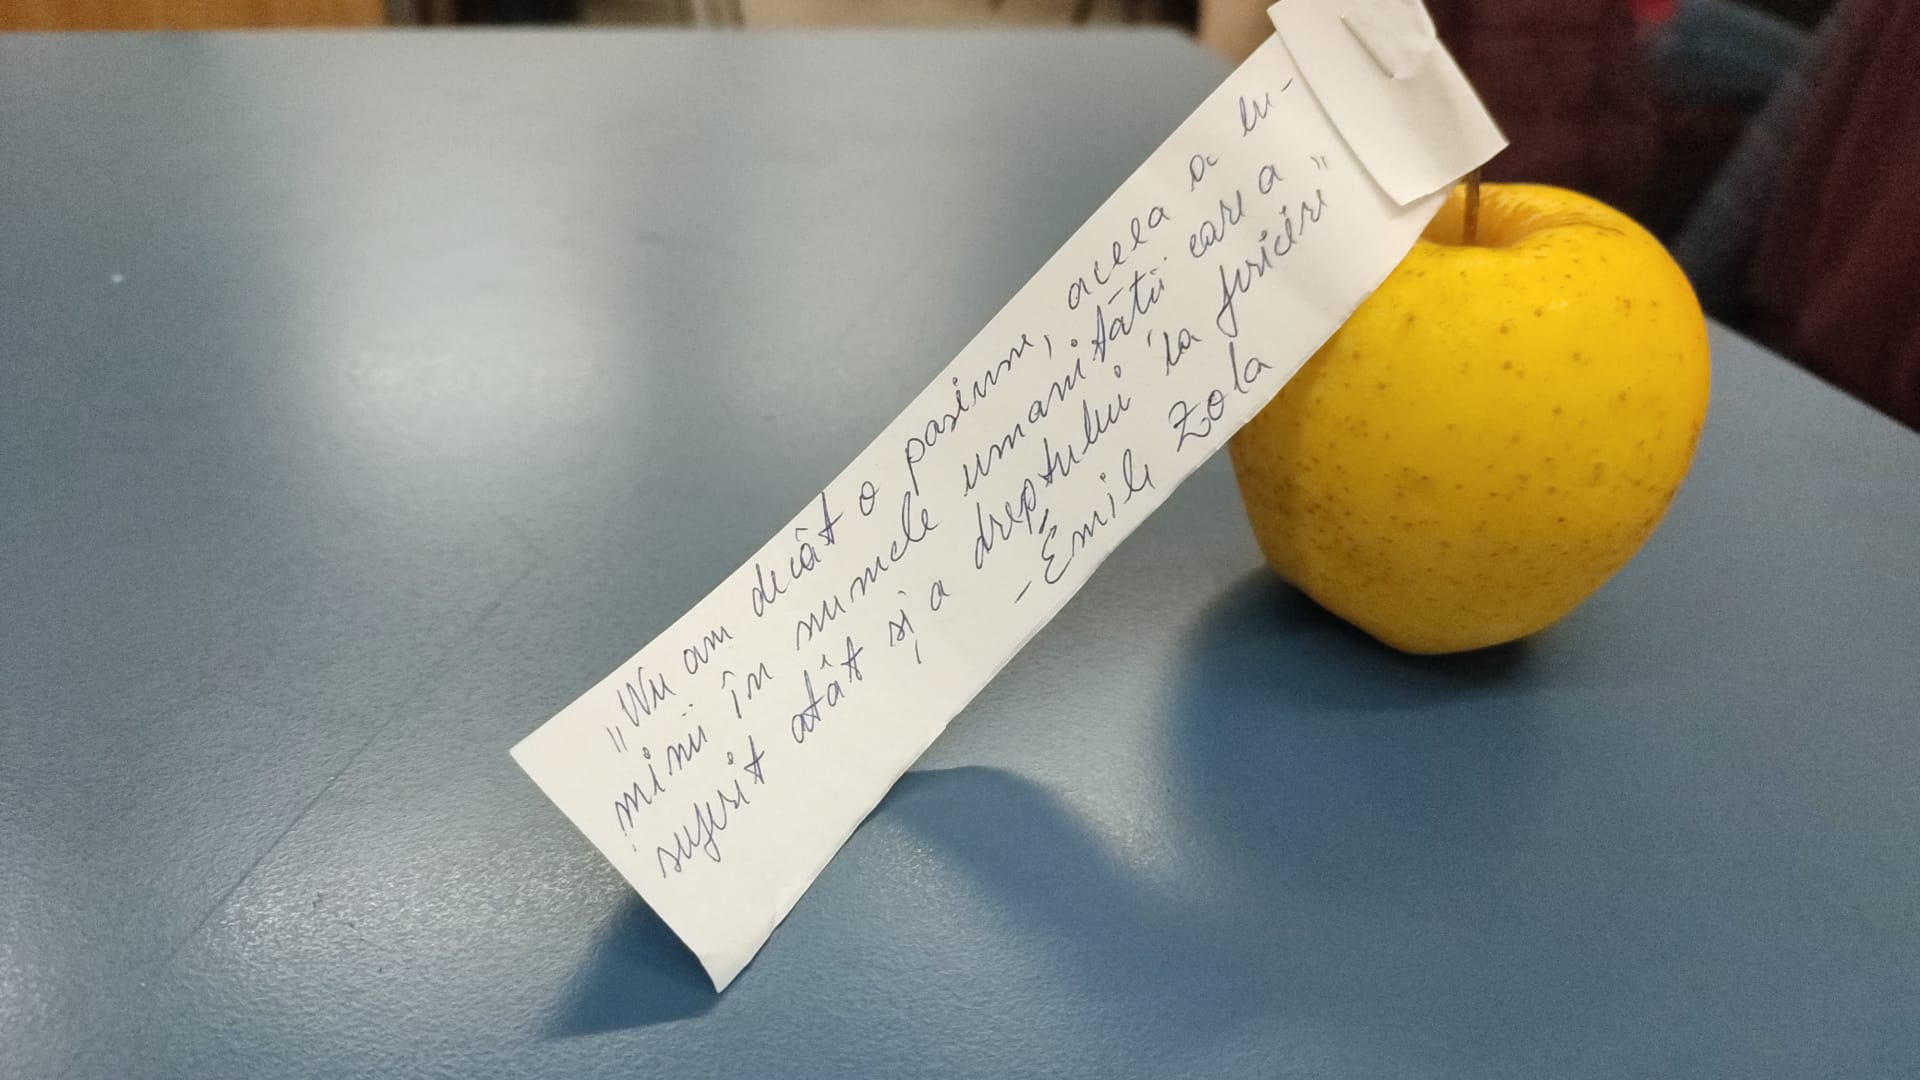 "Nu am decât o pasiune, aceea a lu-
minii în numele umanității care a
suferit atât și a dreptului la fericire"
- Émile Zola